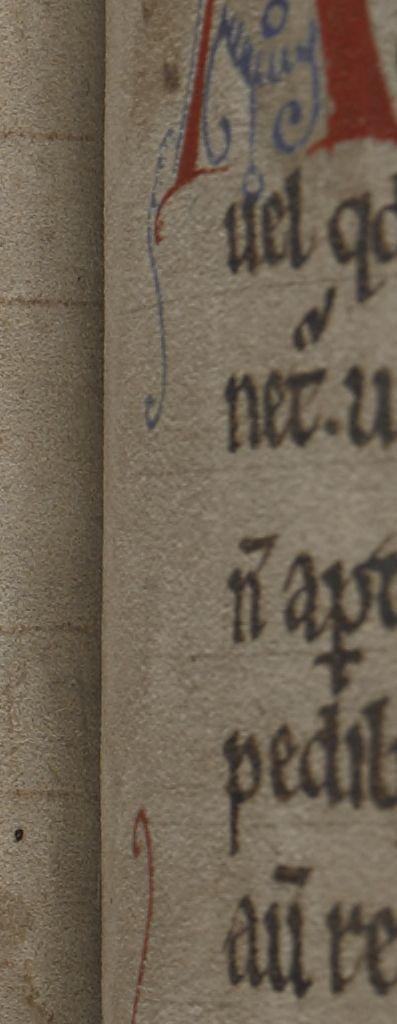 uel qd
net̃. u
n̄ apt
pedib
aū re